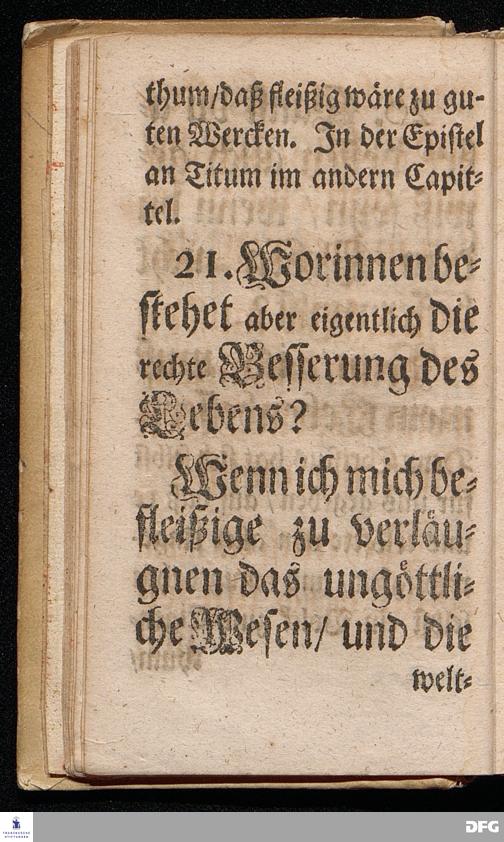 thum/daß fleißig wäre zu gu-
ten Wercken. In der Epistel
an Titum im andern Capit-
tel.
21. Worinnen be-
stehet aber eigentlich die
rechte Besserung des
Lebens?
Wenn ich mich be-
fleißige zu verläu-
gnen das ungöttli-
che Wesen/ und die
welt-
FRANCKESCHE
STIFTUNGEN
DFG